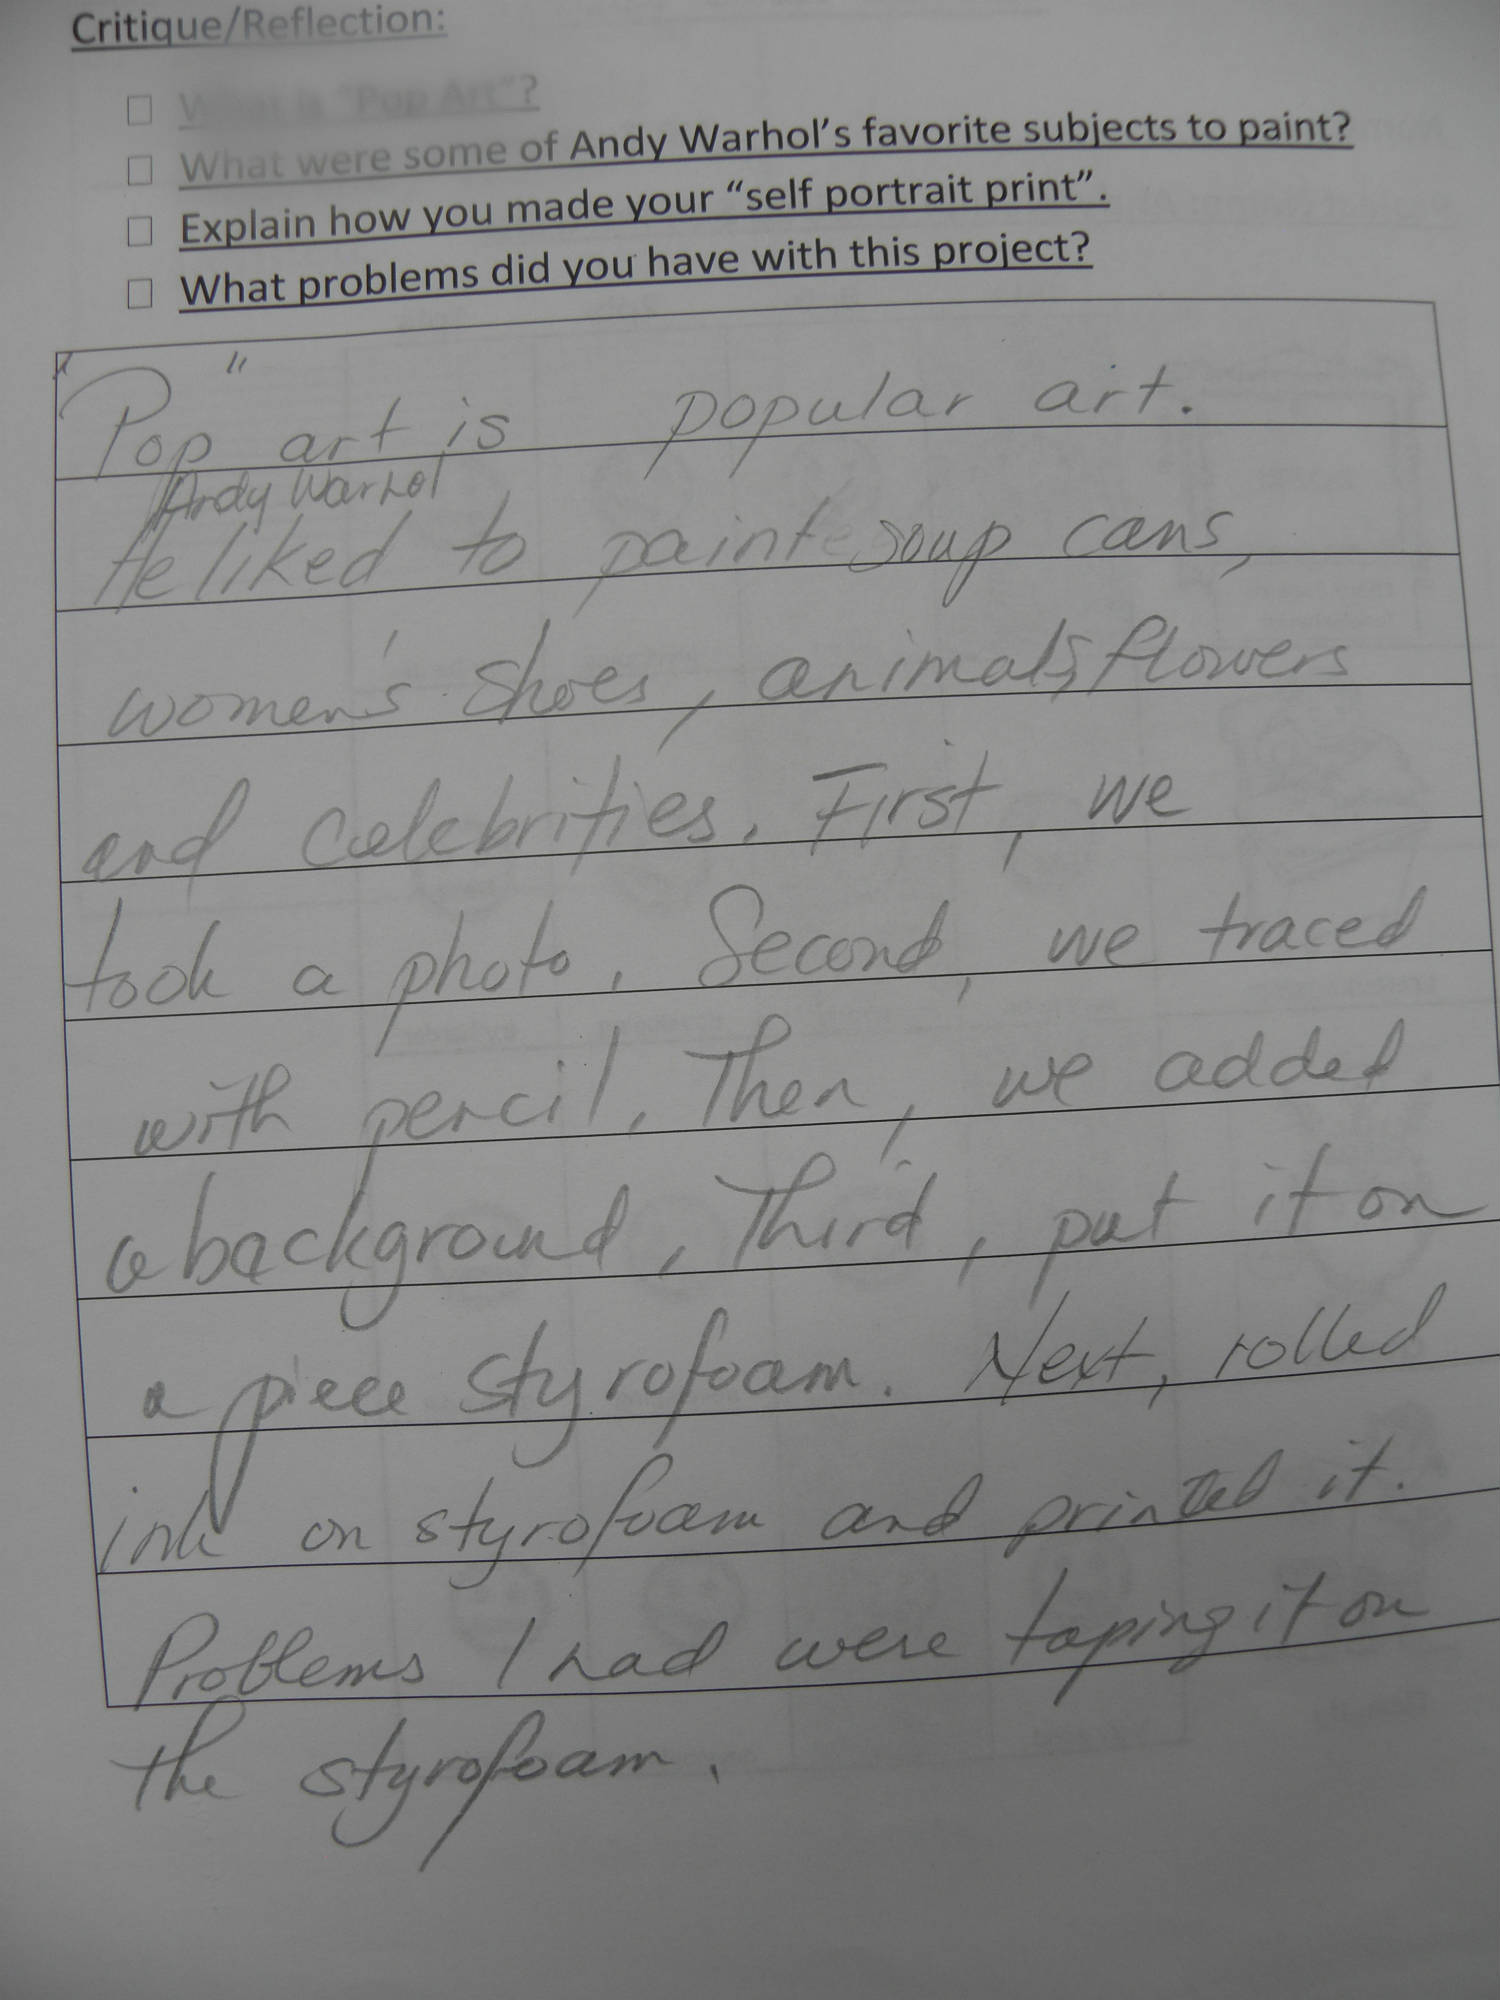 Critique/Reflection:
☐ What is "Pop Art"?
☐ What were some of Andy Warhol's favorite subjects to paint?
☐ Explain how you made your "self portrait print".
☐ What problems did you have with this project?
"Pop" art is popular art.
Andy Warhol
He liked to paint soup cans,
women's shoes, animals, flowers
and celebrities. First, we
took a photo. Second, we traced
with pencil. Then, we added
a background. Third, put it on
a piece styrofoam. Next, rolled
ink on styrofoam and printed it.
Problems I had were taping it on
the styrofoam.